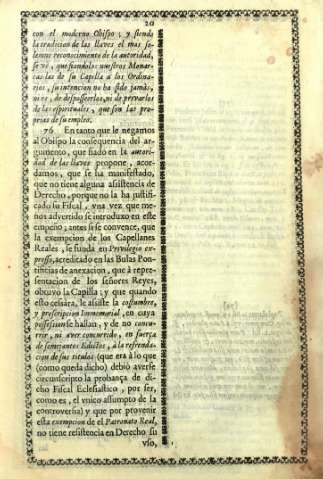 20
con el moderno Obispo; y siendo
la tradicion de las llaves el mas so-
lemne reconocimiento de la autoridad,
se vè, que fiandolas nuestros Monar-
cas las de su Capilla à los Ordina-
rios, su intencion no ha sido jamàs,
ni es, de despojarles, ni de privarles
de las espirituales, que son las pro-
prias de su empleo.
76 En tanto que le negamos
al Obispo la consequencia del ar-
gumento, que fiado en la autori-
dad de las llaves propone, acor-
damos, que se ha manifestado,
que no tiene alguna asistencia de
Derecho, porque no la ha justifi-
cado su Fiscal, vna vez que me-
nos advertido se introduxo en este
empeño; antes si se convence, que
la exempcion de los Capellanes
Reales, se funda en Privilegio ex-
presso, acreditado en las Bulas Pon-
tificias de anexacion, que à repre-
sentacion de los señores Reyes,
obtuvo la Capilla; y que quando
esto cessàra, le assiste la costumbre,
y prescripcion Immemorial, en cuya
possession se hallan, y de no concu-
rrir, ni aver concurrido, en fuerza
de semejantes Edictos, à la refrenda-
cion de sus titulos (que era à lo que
(como queda dicho) debiò averse
circunscripto la probança de di-
cho Fiscal Eclesiastico, por ser,
como es, el vnico assumpto de la
controversia) y que por provenir
esta exempcion de el Patronato Real,
no tiene resistencia en Derecho su
vso,